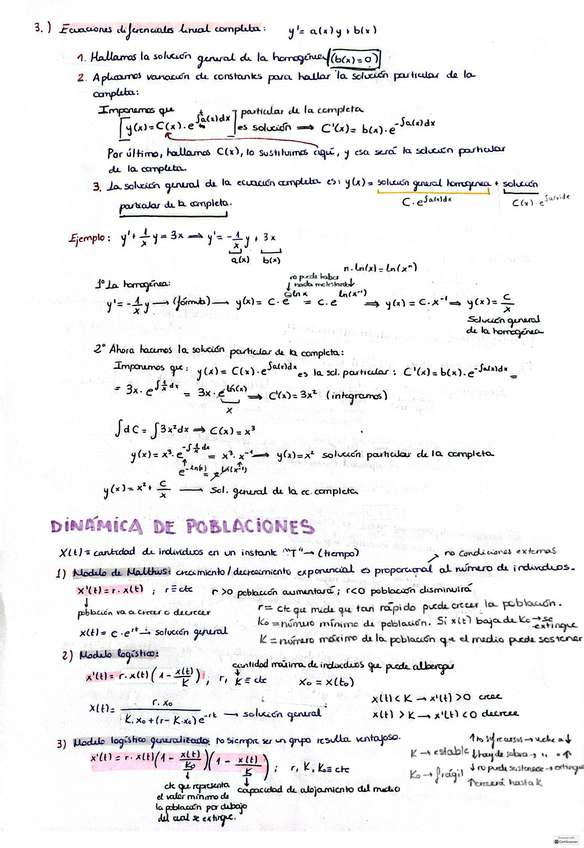 3.) Ecuaciones diferenciales lineal completa: y' = a(x)y + b(x)
1. Hallamos la solución general de la homogénea (b(x)=0)
2. Aplicamos variación de constantes para hallar la solución particular de la
completa:
Imponemos que
y(x) = C(x)·e^∫a(x)dx particular de la completa
es solución ⟹ C'(x) = b(x)·e^-∫a(x)dx
Por último, hallamos C(x), lo sustituimos aquí, y esa será la solución particular
de la completa.
3. La solución general de la ecuación completa es: y(x) = solución general homogenea + solución
particular de la completa.
C·e^∫a(x)dx C(x)·e^∫a(x)dx
Ejemplo: y' + 1/x y = 3x → y' = -1/x y + 3x
a(x) b(x)
n·ln(x) = ln(x^n)
1º La homogénea:
no puede haber
nada molestando
y' = -1/x y → (fórmula) → y(x) = C·e^-ln x = C·e^ln(x^-1) ⟹ y(x) = C·x^-1 ⟹ y(x) = C/x
Solución general
de la homogénea
2º Ahora hacemos la solución particular de la completa:
Imponemos que: y(x) = C(x)·e^∫a(x)dx es la sol. particular: C'(x) = b(x)·e^-∫a(x)dx =
= 3x·e^∫1/x dx = 3x·e^ln(x) ⟹ C'(x) = 3x² (integramos)
x
∫dC = ∫3x²dx ⟹ C(x) = x³
y(x) = x³·e^-∫1/x dx = x³·x^-1 → y(x) = x² solución particular de la completa
e^-ln(x) = e^ln(x^-1)
y(x) = x² + C/x → Sol. general de la ec. completa
DINÁMICA DE POBLACIONES
X(t) = cantidad de individuos en un instante "T" → (tiempo)
no condiciones externas
1) Modelo de Malthus: crecimiento/decrecimiento exponencial es proporcional al número de individuos.
x'(t) = r·x(t) ; r ≡ cte r>0 población aumentará; r<0 población disminuirá
población va a crecer o decrecer
r = cte que mide que tan rápido puede crecer la población.
K₀ = número mínimo de población. Si x(t) baja de K₀ → se extingue
x(t) = c·e^rt → solución general
K = número máximo de la población que el medio puede sostener
2) Modelo logístico:
cantidad máxima de individuos que puede albergar
x'(t) = r·x(t)(1 - x(t)/K) ; r, K ≡ cte x₀ = x(t₀)
x(t) < K → x'(t) > 0 crece
x(t) = r·x₀ / K·x₀ + (r - K·x₀)e^-rt → solución general
x(t) > K → x'(t) < 0 decrece
3) Modelo logístico generalizado: no siempre ser un grupo resulta ventajoso.
x'(t) = r·x(t)(1 - x(t)/K₀)(1 - x(t)/K) ; r, K, K₀ ≡ cte
K → estable
K₀ → frágil
↓ no puede sostenerse → extingue
↑ crecerá hasta K
cte que representa
el valor mínimo de
la población por debajo
del cual se extingue.
capacidad de alojamiento del medio
CamScanner